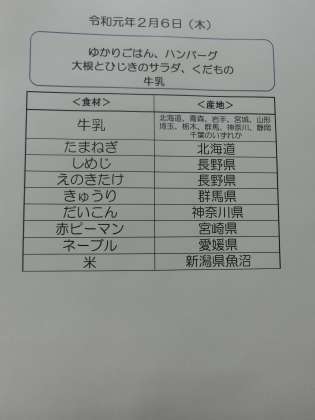 令和元年２月６日（木）
ゆかりごはん、ハンバーグ
大根とひじきのサラダ、くだもの
牛乳
＜食材＞ ＜産地＞
牛乳 北海道、青森、岩手、宮城、山形
埼玉、栃木、群馬、神奈川、静岡
千葉のいずれか
たまねぎ 北海道
しめじ 長野県
えのきたけ 長野県
きゅうり 群馬県
だいこん 神奈川県
赤ピーマン 宮崎県
ネーブル 愛媛県
米 新潟県魚沼